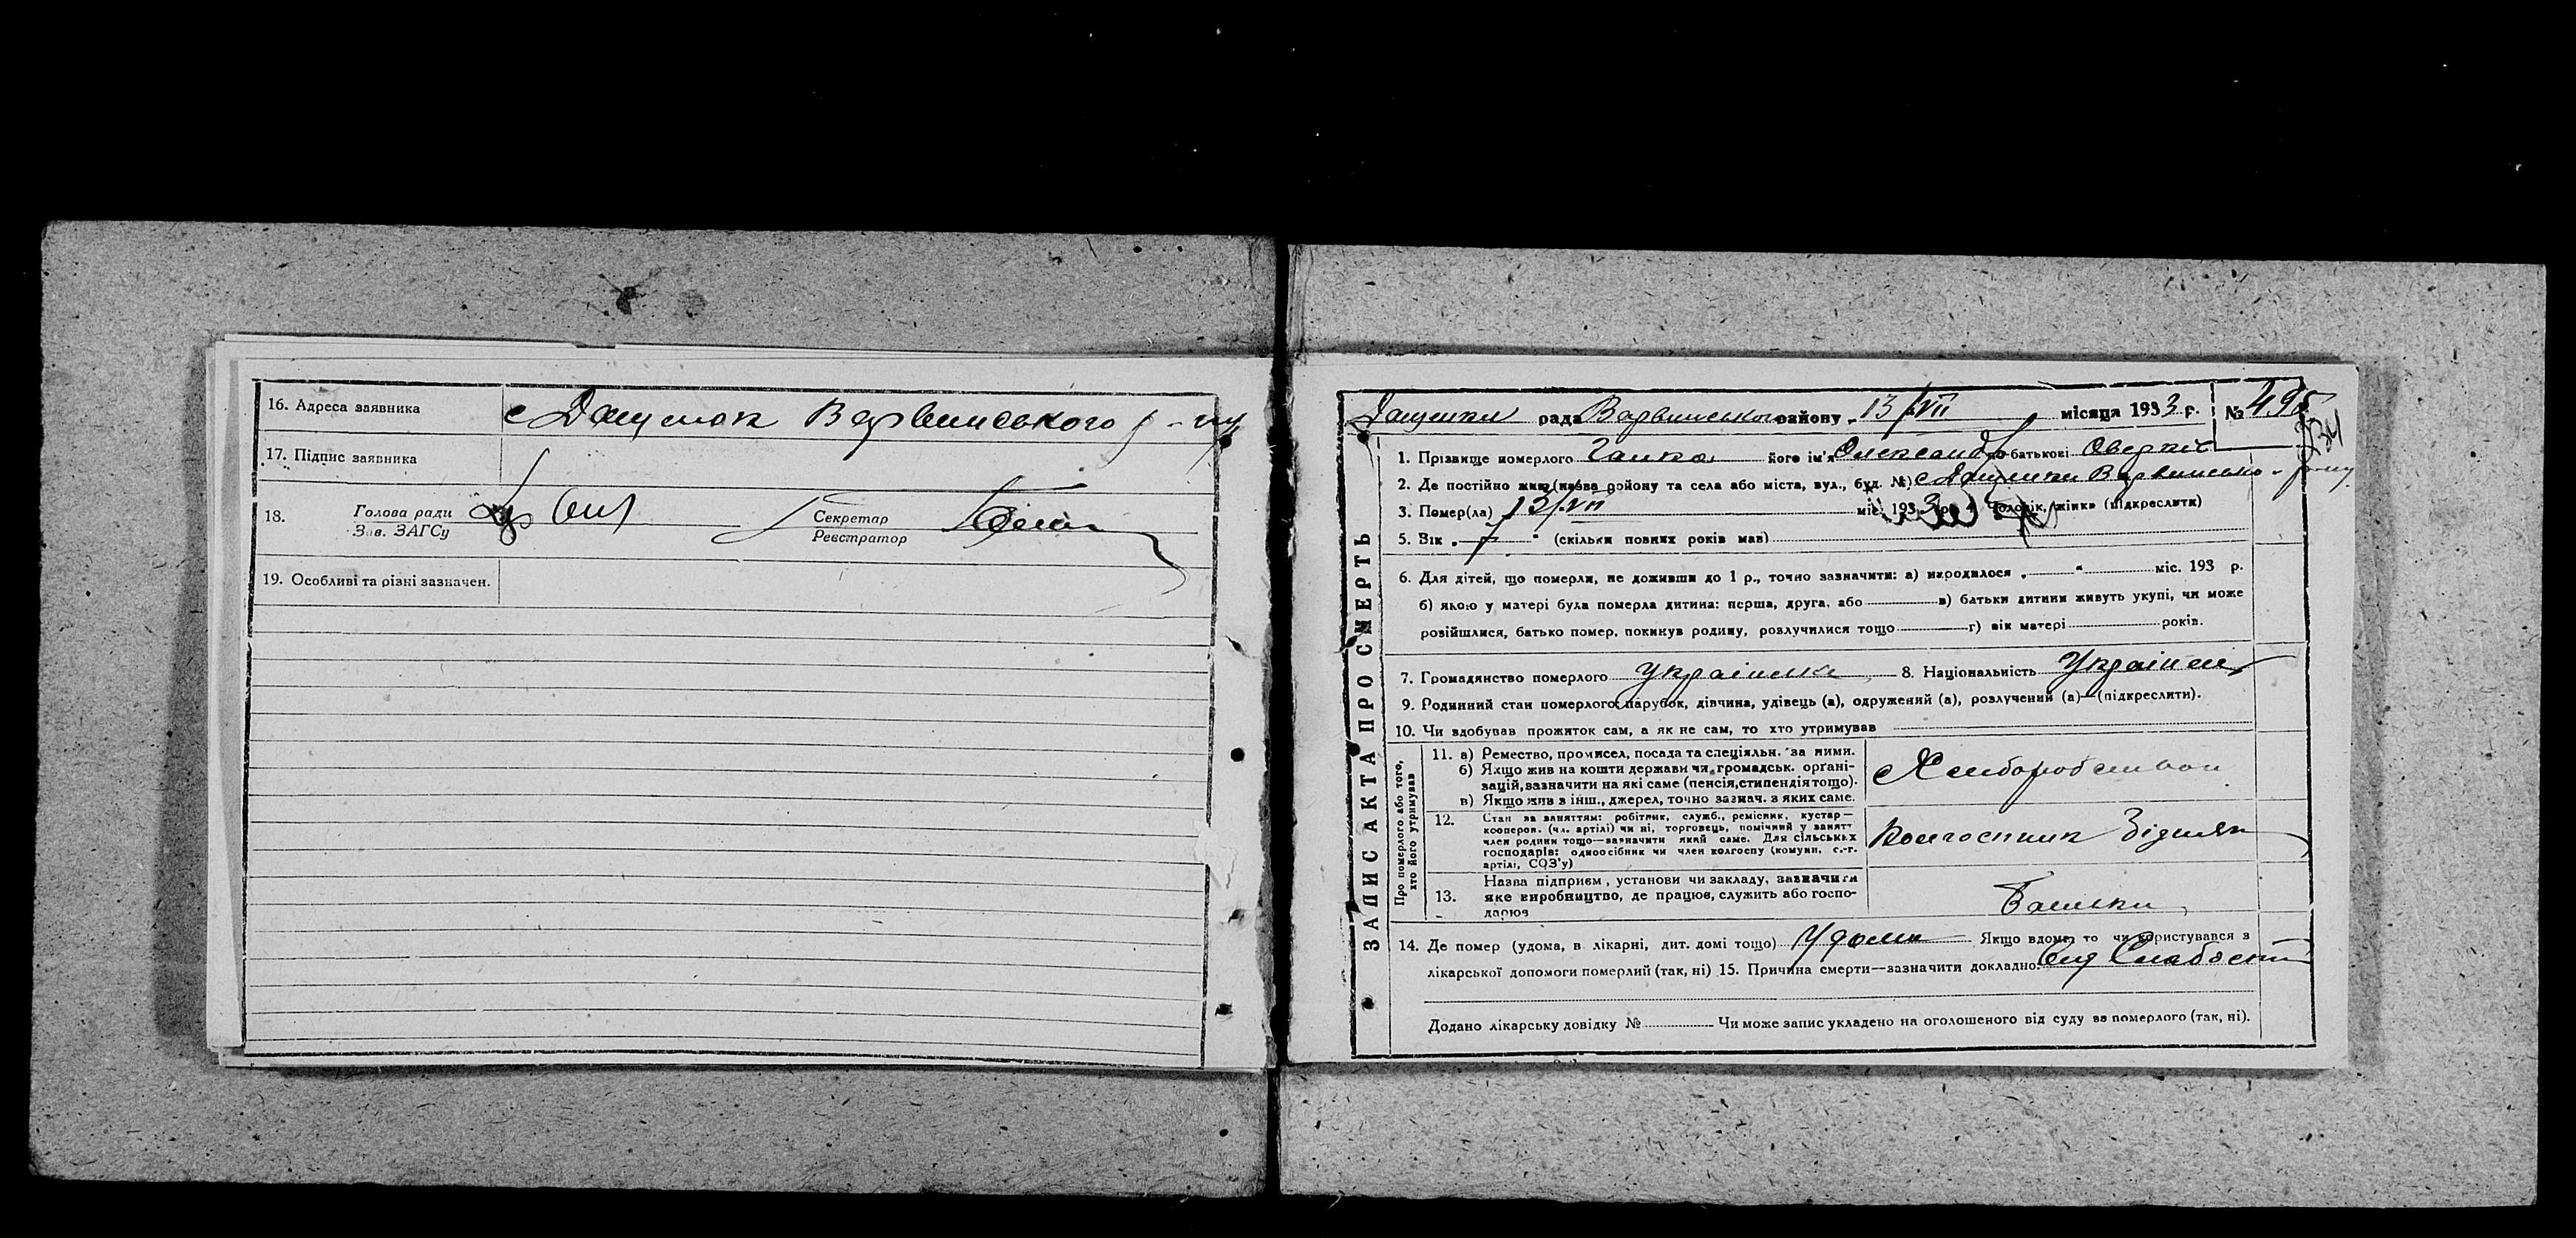 16. Адреса заявника с Дащенок Варвинського р-ну
17. Підпис заявника
18. Голова ради
Зав. ЗАГСу
Секретар
Реєстратор
19. Особливі та різні зазначен.
ЗАПИС АКТА ПРО СМЕРТЬ
Дащенки рада Варвинського району 13/VII місяця 1933 р. № 495
234
1. Прізвище померлого його ім'я Олександр по-батькові Оверків
2. Де постійно жив (назва району та села або міста, вул., буд. №) с Дащенки Варвинсько р-ну
3. Помер(ла) 13/VII міс. 1933 р. 4. Чоловік, жінка (підкреслити)
5. Вік „ 7 “ (скільки повних років мав)
6. Для дітей, що померли, не доживши до 1 р., точно зазначити: а) народилося „ “ міс. 193 р.
б) якою у матері була померла дитина: перша, друга, або в) батьки дитини живуть укупі, чи може
розійшлися, батько помер, покинув родину, розлучилися тощо г) вік матері років.
7. Громадянство померлого українське 8. Національність Українец
9. Родинний стан померлого: парубок, дівчина, удівець (а), одружений (а), розлучений (а)—(підкреслити).
10. Чи здобував прожиток сам, а як не сам, то хто утримував
Про померлого або того,
хто його утримував
11. а) Ремество, промисел, посада та спеціяльн. за ними.
б) Якщо жив на кошти держави чи громадськ. орґані-
зацій, зазначити на які саме (пенсія, стипендія тощо).
в) Якщо жив з інш., джерел, точно зазнач. з яких саме.
Хлиборобством
12. Стан за заняттям: робітник, служб., ремісник, кустар—
кооперов. (чл. артілі) чи ні, торговець, помічний у занятт
член родини тощо—зазначити який саме. Для сільських
господарів: одноосібник чи член колгоспу (комуни, с.-г.
артілі, СОЗ'у)
Колгоспник Бідняк
13. Назва підприєм., установи чи закладу, зазначити
яке виробництво, де працює, служить або госпо-
дарює
14. Де помер (удома, в лікарні, дит. домі тощо) Удома Якщо вдома, то чи користувався з
лікарської допомоги померлий (так, ні) 15. Причина смерти—зазначити докладно. Від Слабости
Додано лікарську довідку № Чи може запис укладено на оголошеного від суду за померлого (так, ні).